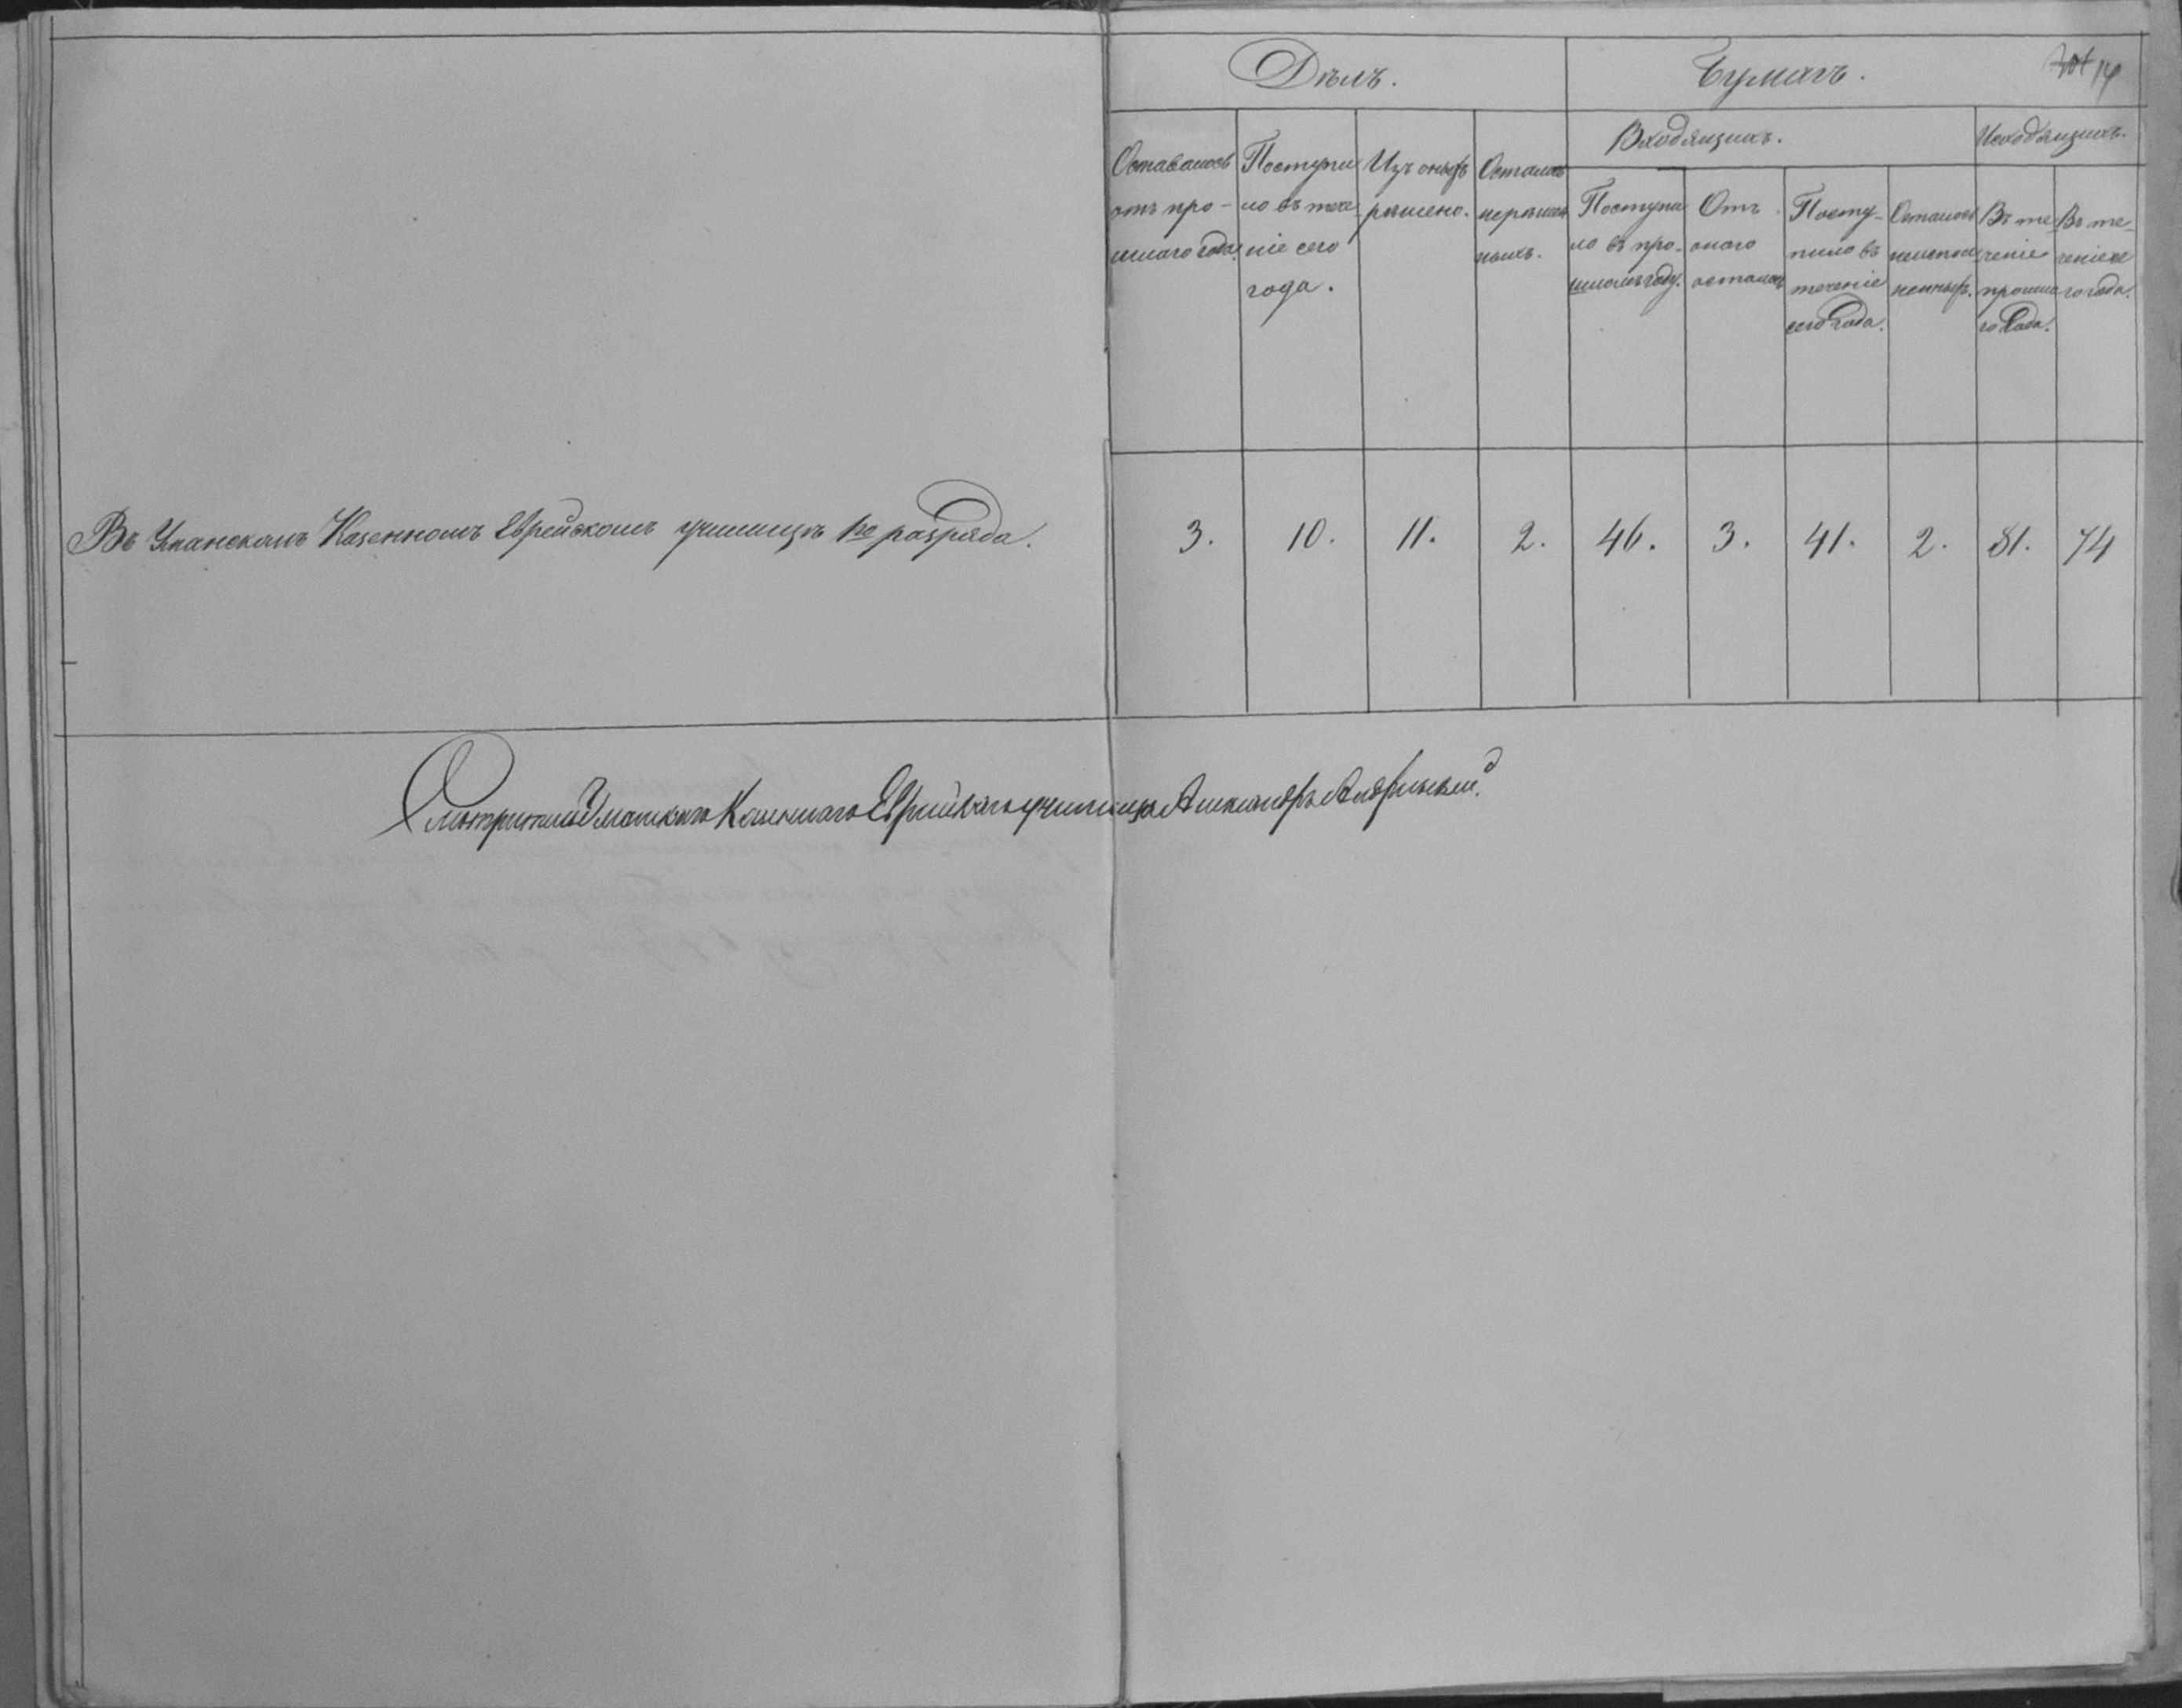 Дѣлъ.
Бумагъ.
14
Входящихъ.
Исходящихъ.
Оставалось
отъ про-
шлаго года.
Поступи
ло въ тече
ніе сего
года.
Изъ оныхъ
рѣшено.
Осталось
нерѣшен
ныхъ.
Поступи
ло въ про-
шломъ году.
Отъ
онаго
осталось
Посту-
пило въ
теченіе
сего года.
Осталось
неиспол
ненныхъ.
Въ те-
ченіе
прошла
го года.
Въ те-
ченіе се
го года.
Въ Уманскомъ Казенномъ Еврейскомъ училищѣ 1го разряда.
3. 10. 11. 2. 46. 3. 41. 2. 81. 74
Смотритель Уманскаго Казеннаго Еврейскаго училища Александръ